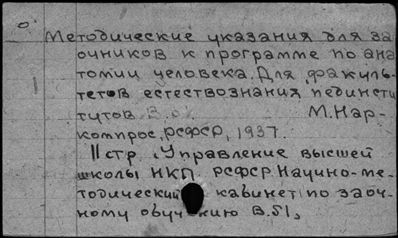 Методические указания для за
очников к программе по ана
томии человека. Для факуль-
тетов естествознания пединсти
тутов М. Нар-
компрос, РСФСР, 1937.
11 стр. Управление высшей
школы НКП РСФСР. Научно-ме-
тодический кабинет по заоч-
ному обучению В.51,